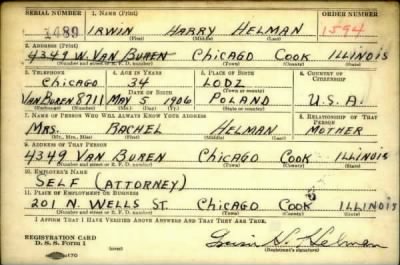 SERIAL NUMBER 1. NAME (Print) ORDER NUMBER
1489 IRWIN HARRY HELMAN 1594
(First) (Middle) (Last)
2. ADDRESS (Print)
4349 W. VAN BUREN CHICAGO COOK ILLINOIS
(Number and street or R. F. D. number) (Town) (County) (State)
3. TELEPHONE 4. AGE IN YEARS 5. PLACE OF BIRTH 6. COUNTRY OF CITIZENSHIP
CHICAGO 34 LODZ
DATE OF BIRTH (Town or county)
VAN BUREN 8711 MAY 5 1906 POLAND U.S.A.
(Exchange) (No.) (Mo.) (Day) (Yr.) (State or country)
7. NAME OF PERSON WHO WILL ALWAYS KNOW YOUR ADDRESS 8. RELATIONSHIP OF THAT PERSON
MRS. RACHEL HELMAN MOTHER
(Mr., Mrs., Miss) (First) (Middle) (Last)
9. ADDRESS OF THAT PERSON
4349 VAN BUREN CHICAGO COOK ILLINOIS
(Number and street or R. F. D. number) (Town) (County) (State)
10. EMPLOYER'S NAME
SELF (ATTORNEY)
11. PLACE OF EMPLOYMENT OR BUSINESS
201 N. WELLS ST. CHICAGO COOK ILLINOIS
(Number and street or R. F. D. number) (Town) (County) (State)
I AFFIRM THAT I HAVE VERIFIED ABOVE ANSWERS AND THAT THEY ARE TRUE.
REGISTRATION CARD
D. S. S. Form 1 Irwin H. Helman
(Registrant's signature)